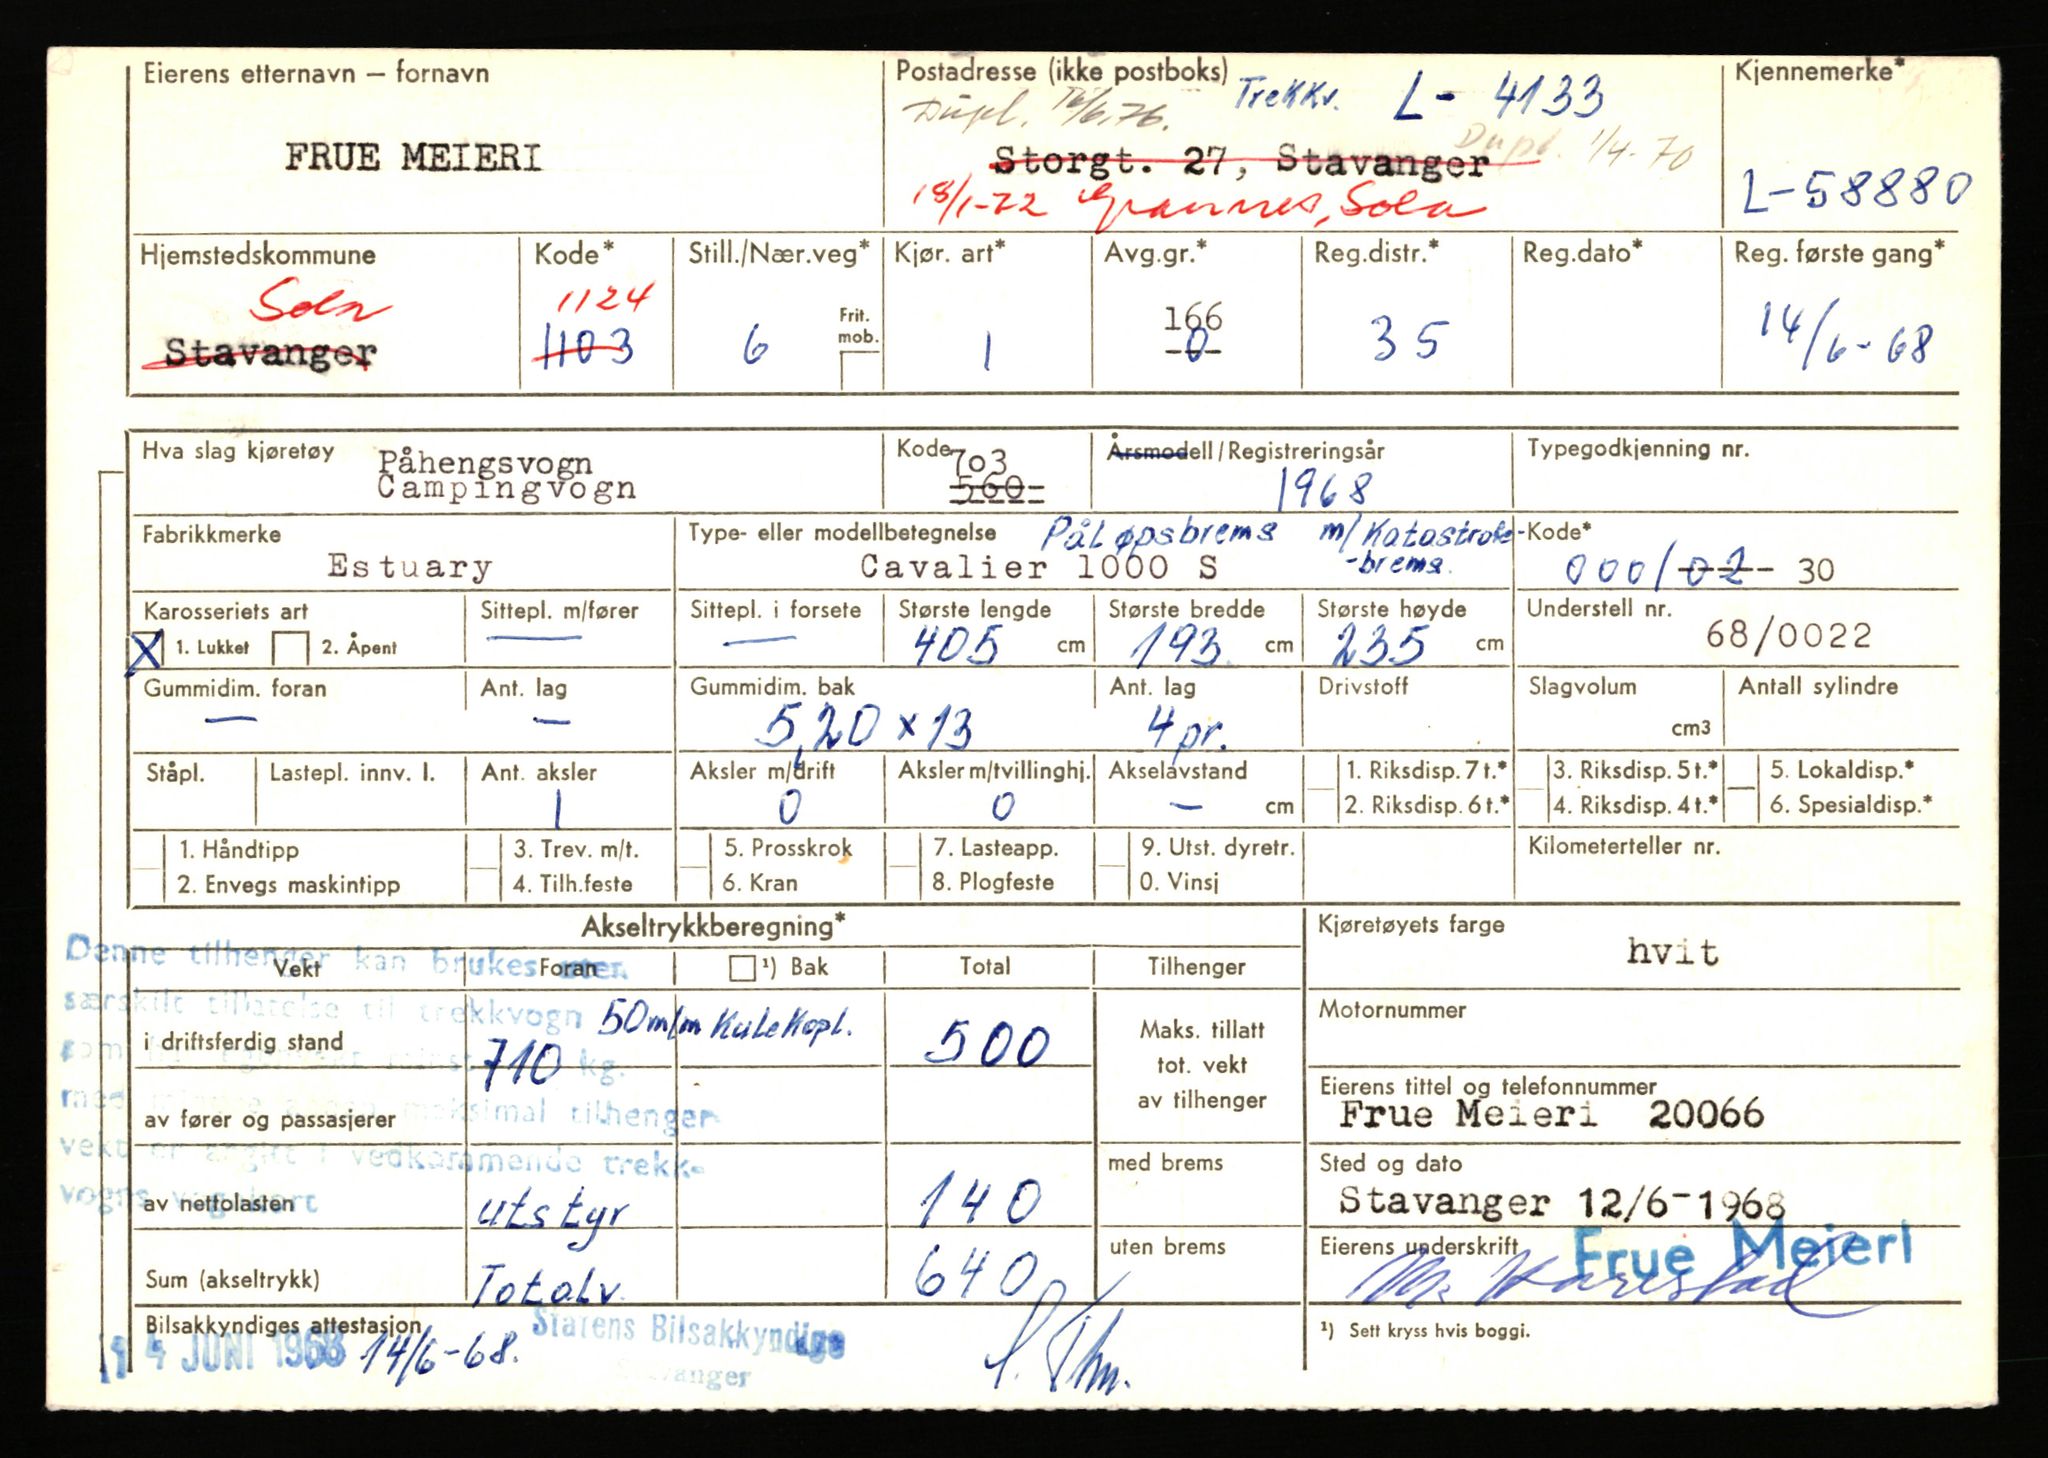 Eierens etternavn – fornavn
FRUE MEIERI
Postadresse (ikke postboks)
Trekkv. L - 4133
Dupl. 16/6.76.
Dupl. 1/4-70
Storgt. 27, Stavanger
18/1-72 Grannes, Sola
Kjennemerke*
L-58880
Hjemstedskommune
Sola
Stavanger
Kode*
1124
1103
Still./Nær.veg*
6
Frit.
mob.
Kjør. art*
1
Avg.gr.*
166
0
Reg.distr.*
35
Reg.dato*
Reg. første gang*
14/6-68
Hva slag kjøretøy
Påhengsvogn
Campingvogn
Kode
703
560
Årsmodell/Registreringsår
1968
Typegodkjenning nr.
Fabrikkmerke
Estuary
Type- eller modellbetegnelse
Påløpsbrems m/Katastrofe-
-brems.
Cavalier 1000 S
Kode*
000/02 30
Karosseriets art
X 1. Lukket 2. Åpent
Sittepl. m/fører
—
Sittepl. i forsete
—
Største lengde
405 cm
Største bredde
193 cm
Største høyde
235 cm
Understell nr.
68/0022
Gummidim. foran
—
Ant. lag
—
Gummidim. bak
5,20 x 13
Ant. lag
4pr.
Drivstoff
Slagvolum
cm3
Antall sylindre
Ståpl.
Lastepl. innv. l.
Ant. aksler
1
Aksler m/drift
0
Aksler m/tvillinghj.
0
Akselavstand
— cm
1. Riksdisp. 7 t.*
2. Riksdisp. 6 t.*
3. Riksdisp. 5 t.*
4. Riksdisp. 4 t.*
5. Lokaldisp.*
6. Spesialdisp.*
1. Håndtipp
2. Envegs maskintipp
3. Trev. m/t.
4. Tilh.feste
5. Prosskrok
6. Kran
7. Lasteapp.
8. Plogfeste
9. Utst. dyretr.
0. Vinsj
Kilometerteller nr.
Akseltrykkberegning*
Vekt
Foran
¹) Bak
Total
Tilhenger
Denne tilhenger kan brukes uten
særskilt tillatelse til trekkvogn
kg.
maksimal tilhenger-
vekt er angitt i vedkommende trekk-
vogns vognkort
i driftsferdig stand
50 m/m Kulekopl.
710
500
av fører og passasjerer
av nettolasten
utstyr
140
Sum (akseltrykk)
Totalv.
640
Maks. tillatt
tot. vekt
av tilhenger
med brems
uten brems
Kjøretøyets farge
hvit
Motornummer
Eierens tittel og telefonnummer
Frue Meieri 20066
Sted og dato
Stavanger 12/6-1968
Eierens underskrift
Frue Meieri
¹) Sett kryss hvis boggi.
Bilsakkyndiges attestasjon
14 JUNI 1968 14/6-68.
Statens Bilsakkyndige
Stavanger